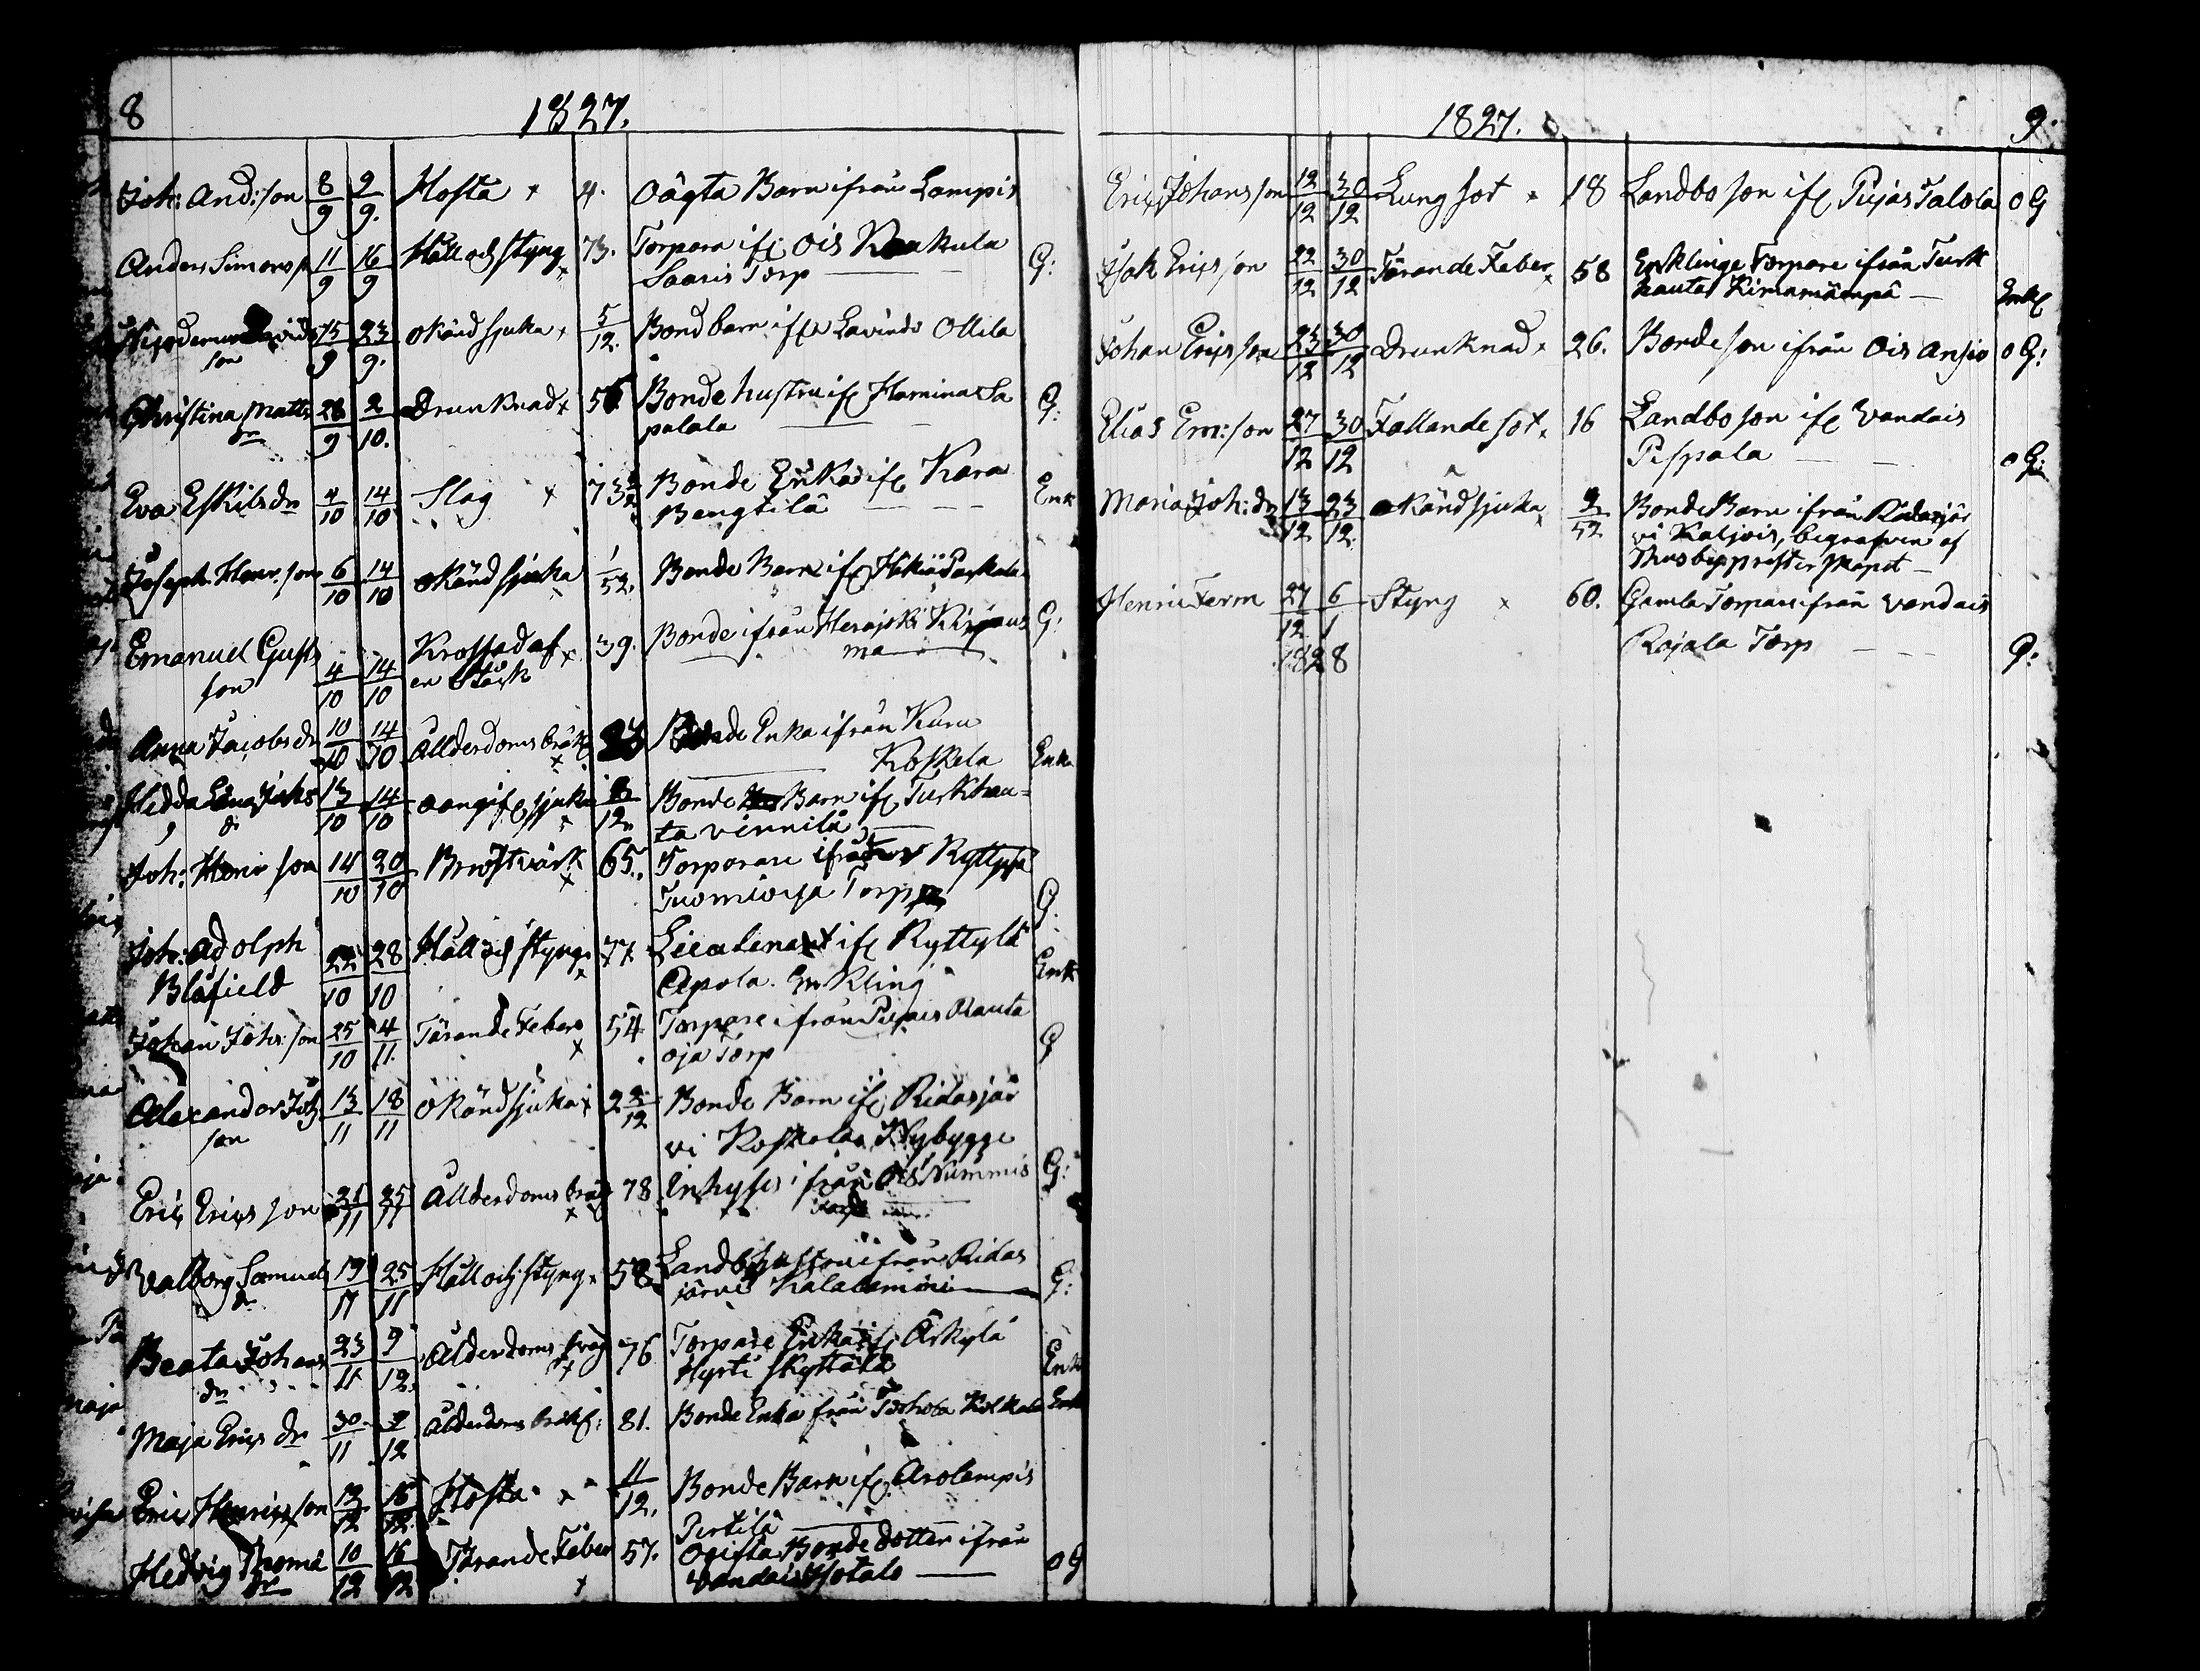 8 1827.
Joh: And:son 8/9 9/9. Hosta x 4. Oägta Barn ifrån Lampis
Anders Simons 11/9 16/9 Håll och styng x 73. Torpare if: Ois Kaukula G:
Saaris Torp
15/9 23/9. okänd sjuka x 5/12. Bond barn if: Lavinds Ollila
son
Christina Matts 28/9 2/10. Drunknad x 56 Bonde hustru if: Hamina Sa G:
dr palala
Eva Eskilsdr 4/10 14/10 Slag x 73 Bonde Enka if: Kara Enk
Bengtilä
Joseph Henr: son 6/10 14/10 okänd sjuka 1/52. Bonde Barn if: Hikiä Paskala
Emanuel Gusts 4/10 14/10 Krossad af x 39. Bonde ifrån Herajoki G:
son en Stock ma
Anna Jacobsdr 10/10 14/10 Ållderdoms bräkl x Bonde Enka ifrån Kara Enka
Koskela
Hedda Lena Joh:s 13/10 14/10 oangif: sjuka 8/12. Bonde Barn if: Turkhau=
dr ta Vinnilä
Joh: Henr son 14/10 20/10 Bröstvärk x 65. Torpare ifrån Ryttylä
Tuomioja Torp G.
Joh: Adolph 22/10 28/10 Håll och styng x 77. Lieutenant if: Ryttylä Enk
Blåfield Apola. Enkling
Johan Joh: son 25/10 4/11. Tärande Feber x 54. Torpare ifrån Pujais Rauta G
oja Torp
Alexander Joh: 13/11 18/11 okänd sjuka x 2 2/12 Bonde Barn if: Ridasjär
son vi Koskelas Nybygge
Eric Ericsson 25/11 Ållderdoms bräkl x 78 Inhyses ifrån Ois Nummis G:
Valborg Samuels 19/11 25/11 Håll och styng x 58 Landbo hustru ifrån Ridas G:
dr järvi Kalalamini
Beata Johans 23/11 9/12. Ålderdoms bräkl x 76 Torpare Enka if: Äskylä Enk
dr Hyrti Skyttälä
Maja Erics dr 30/11 9/12 Ålderdoms bräkl: 81. Bonde Enka från Enk
Eric Henricsson 13/12 16/12. Hosta x 11/12. Bonde Barn if: Arolampis
Pertilä
Hedvig Thomä 10/12 16/12 Tärande Feber x 57. Ogifta Bonde dotter ifrån OG
dr Vandais Hotalo
1827. 9.
Eric Johansson 12/12 30/12 Lungsot x 18 Landboson if: Pujas Talola OG
Isak Ericsson 22/12 30/12 Tärande Feber x 58 Enklinge Torpare ifrån Turk
hautas Kirnamänpä Enkl
Johan Ericsson 23/12 30/12 Drunknad x 26. Bondeson ifrån Ois Ansio OG:
Elias Em:son 27/12 30/12 Fallandesot x 16 Landboson if: Vandais
Pispala OG:
Maria Joh:dr 13/12 23/12. okänd sjuka x 2/52 Bonde Barn ifrån Ridasjär
vi Kaljois, begrafven af
Thusby presterskapet
Henric Ferm 27/12 6/1 Styng x 60. Gamla Torpare ifrån Vandais
1828 Rajala Torp G: